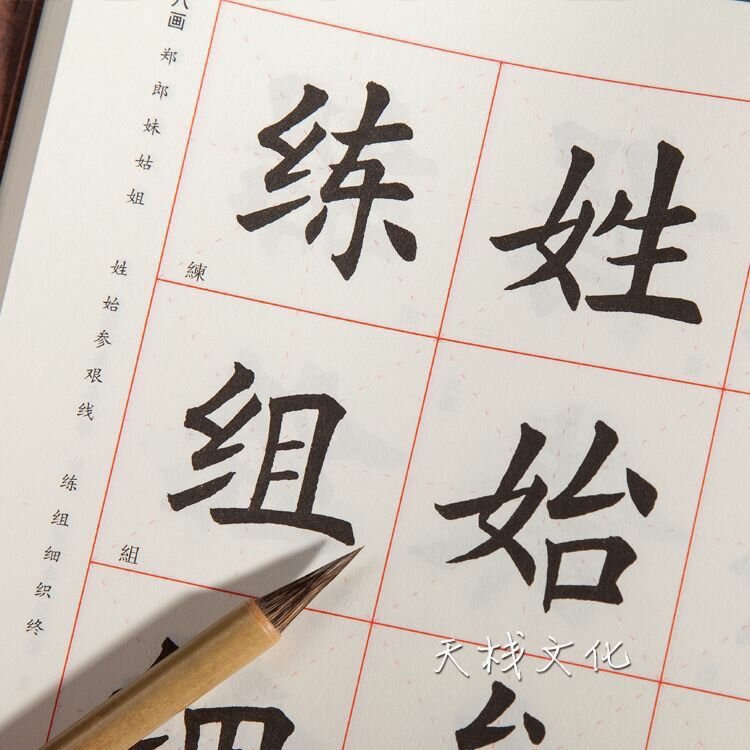 姓始
练组
練
組
八画 郑郎妹姑姐 姓始参艰线 练组细织终
天栈文化